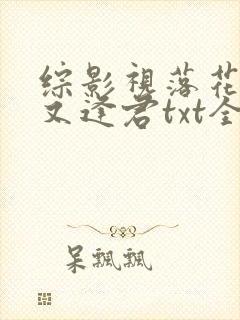 综影视落花
又逢君txt全
呆飘飘